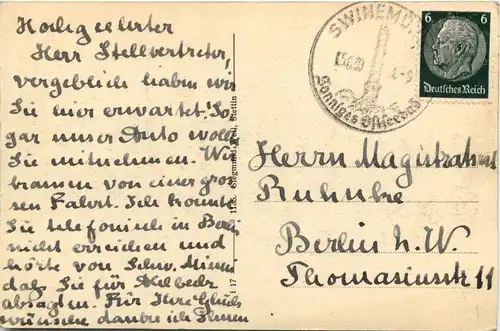 Hochgeehrter
Herr Stellvertreter,
vergeblich haben wir
Sie hier erwartet! So
gar unser Auto wollte
Sie mitnehmen. Wir
kamen von einer gros
sen Fahrt. Ich konnte
Sie telefonisch in Berlin
nicht erreichen und
hörte von Schw.
daß Sie für
absagten. Für Ihre Glück
wünsche danke ich Ihnen
SWINEMÜ
Sonniges Ostseebad
6 6
Deutsches Reich
Stettin
Herrn Magistratsrat
Ruhnke
Berlin N.W.
Thomasiusstr 11